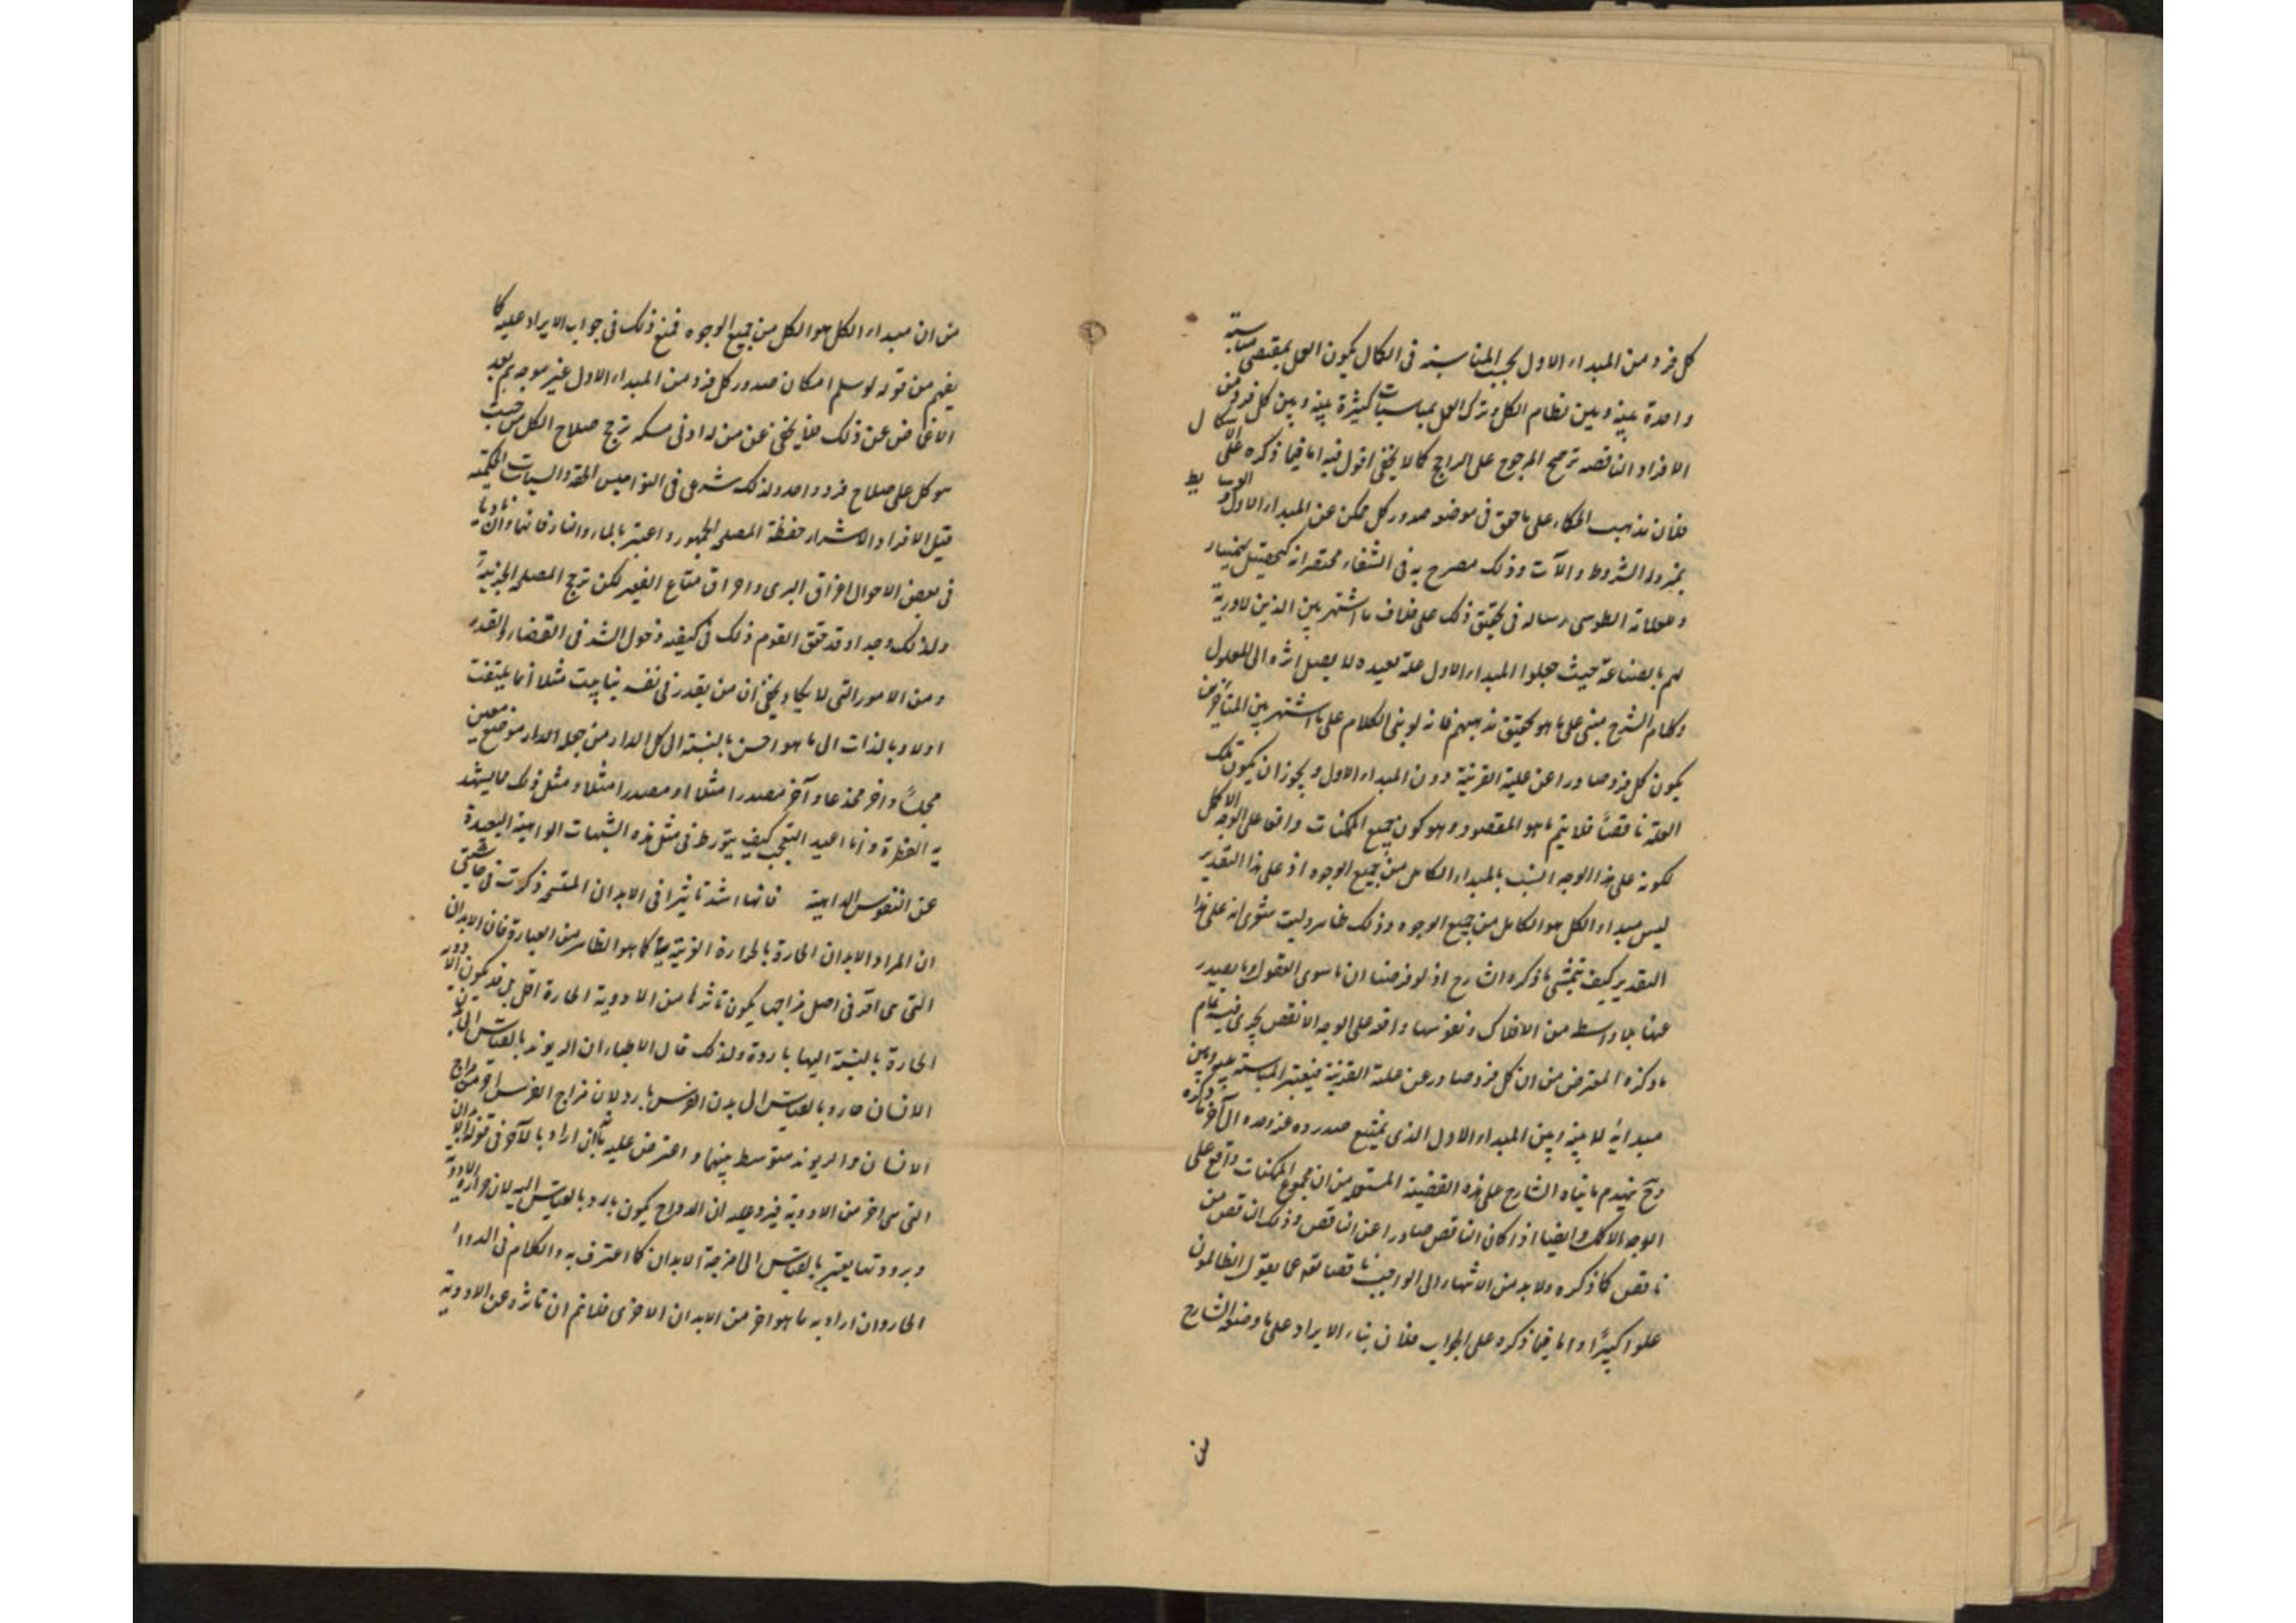 كل فرد من المبداء الاول بحسب المناسبة فى الكمال يكون العمل بمقتضى مناسبة
واحدة بينه وبين نظام الكل وترك العمل بمناسبات كثيرة بينه وبين كل فرد من
الافراد الناقصه ترجيح المرجوح على الراجح كما لا يخفى اقول فيه اما فيما ذكره على
فلان مذهب الحكماء على ما حقق فى موضعه صدور كل ممكن عن المبداء الاول والوسايط
بمنزلة الشروط والآلات وذلك مصرح به فى الشفاء مختصراته كتحصيل بهمنيار
وعلامة الطوسى رساله فى تحقيق ذلك على خلاف ما اشتهر بين الذين لا درية
لهم بالصناعة حيث جعلوا المبداء الاول علة بعيده لا يصل اثره الى المعلول
وكلام الشرح مبنى على ما هو تحقيق مذهبهم فانه لو بنى الكلام على ما اشتهر بين المتأخرين
يكون كل فرد صادرا عن علية القريبة دون المبداء الاول ويجوز ان يكون تلك
العلة ناقصة فلا يتم ما هو المقصود وهو كون جميع الممكنات واقعا على الوجه الاكمل
لكونه على هذا الوجه انسب بالمبداء الكامل من جميع الوجوه اذ على هذا التقدير
ليس مبداء الكل هو الكامل من جميع الوجوه وذلك ظاهر وليت شعرى انه على هذا
التقدير كيف يتمشى ما ذكره الشارح اذ لو فرضنا ان ما سوى العقول وما يصدر
عنها بلا واسطه من الافلاك ونفوسها واقعه على الوجه الانقص يجرى فيه تمام
ما ذكره المعترض من ان كل فرد صادر عن علته القريبة فيعتبر المناسبة بينه وبين
مبدائه لا بينه وبين المبداء الاول الذى يمتنع صدوره عنه وحده الى آخر ما ذكره
وح ينهدم ما بناه الشارح على هذه القضية المستعمله من ان مجموع الممكنات واقع على
الوجه الاكمل وايضا اذا كان الناقص صادرا عن الناقص وذلك الناقص من
ناقص كما ذكره ولا بد من الانتهاء الى الواجب ناقصا تعالى عما يقول الظالمون
علوا كبيرًا واما فيما ذكره على الجواب فلان بناء الايراد على ما وضعه الشارح
من
من ان مبداء الكل هو الكل من جميع الوجوه فمنع ذلك فى جواب الايراد عليه كما
يفهم من قوله لو سلم امكان صدور كل فرد من المبداء الاول غير موجه ثم بعد
الاغماض عن ذلك فلا يخفى عن من له ادنى مسكه ترجح صلاح الكل من حيث
هو كل على صلاح فرد واحد ولذلك شرعى فى النواميس الحقه والسياسات الحكميه
قتل الافراد الاشرار حفظة المصلحه الجمهور واعتبر بالماء والنار فانهما وان تاديا
فى بعض الاحوال اغراق البرى واحراق متاع الفقير لكن ترجح المصلحه الجزئية
ولذلك وجدا وقد حقق القوم ذلك فى كيفيه دخول الشر فى القضاء والقدر
ومن الامور التى لا يكاد يخفى ان من يقدر فى نفسه بناء بيت مثلا انما يلتفت
اولا وبالذات الى ما هو احسن بالنسبة الى كل الدار من جعل الدار موضع معين
مجلسًا واخر مخدعا وآخر مصدرا مثلا او مصدرا مثلا ومثل ذلك مما يشهد
به الفطرة وانا اعيد التعجب كيف يتورط فى مثل هذه الشبهات الواهية البعيدة
عن النفوس الداهية فانها اشد تاثيرا فى الابدان المستحر ذكرت فى حاشيتى
ان المراد الابدان الحارة بالحرارة الغريبة كما هو الظاهر من العبارة فان الابدان
التى هى احر فى اصل مزاجها يكون تاثرها من الادوية الحارة اقل بل قد يكون الادوية
الحارة بالنسبة اليها باردة ولذلك قال الاطباء ان الريوند بالقياس الى بدن
الانسان حار وبالقياس الى بدن الفرس بارد لان مزاج الفرس احر من مزاج
الانسان والريوند متوسط بينهما واعترض عليه بأن ان اراد بالآخر فى قوله الابدان
التى هى احر من الادوية فيرد عليه ان المزاج يكون بارد بالقياس اليه لان حرارة الادوية
وبرودتها يعتبر بالقياس الى امزجة الابدان كما اعترف به والكلام فى الدواء
الحار وان اراد به ما هو احر من الابدان الاخرى فلا نم ان تاثره عن الادوية